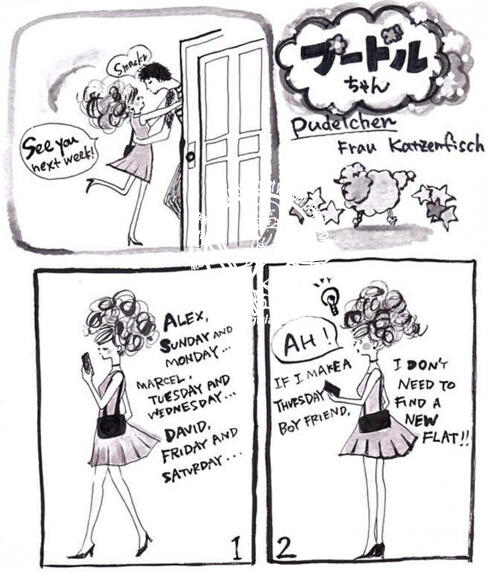 Smack
See you
next week!
プードル
ちゃん
Pudelchen
Frau Katzenfisch
ALEX,
SUNDAY AND
MONDAY...
MARCEL,
TUESDAY AND
WEDNESDAY...
DAVID,
FRIDAY AND
SATURDAY...
1
AH!
IF I MAKE A
THURSDAY
BOY FRIEND,
I DON'T
NEED TO
FIND A
NEW
FLAT!!
2